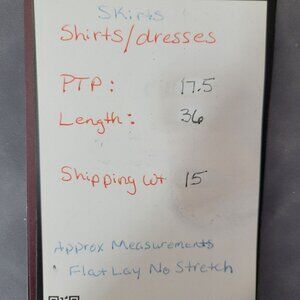 Skirts
Shirts/dresses
PTP: 17.5
Length: 36
Shipping wt 15
Approx Measurements
Flat Lay No Stretch